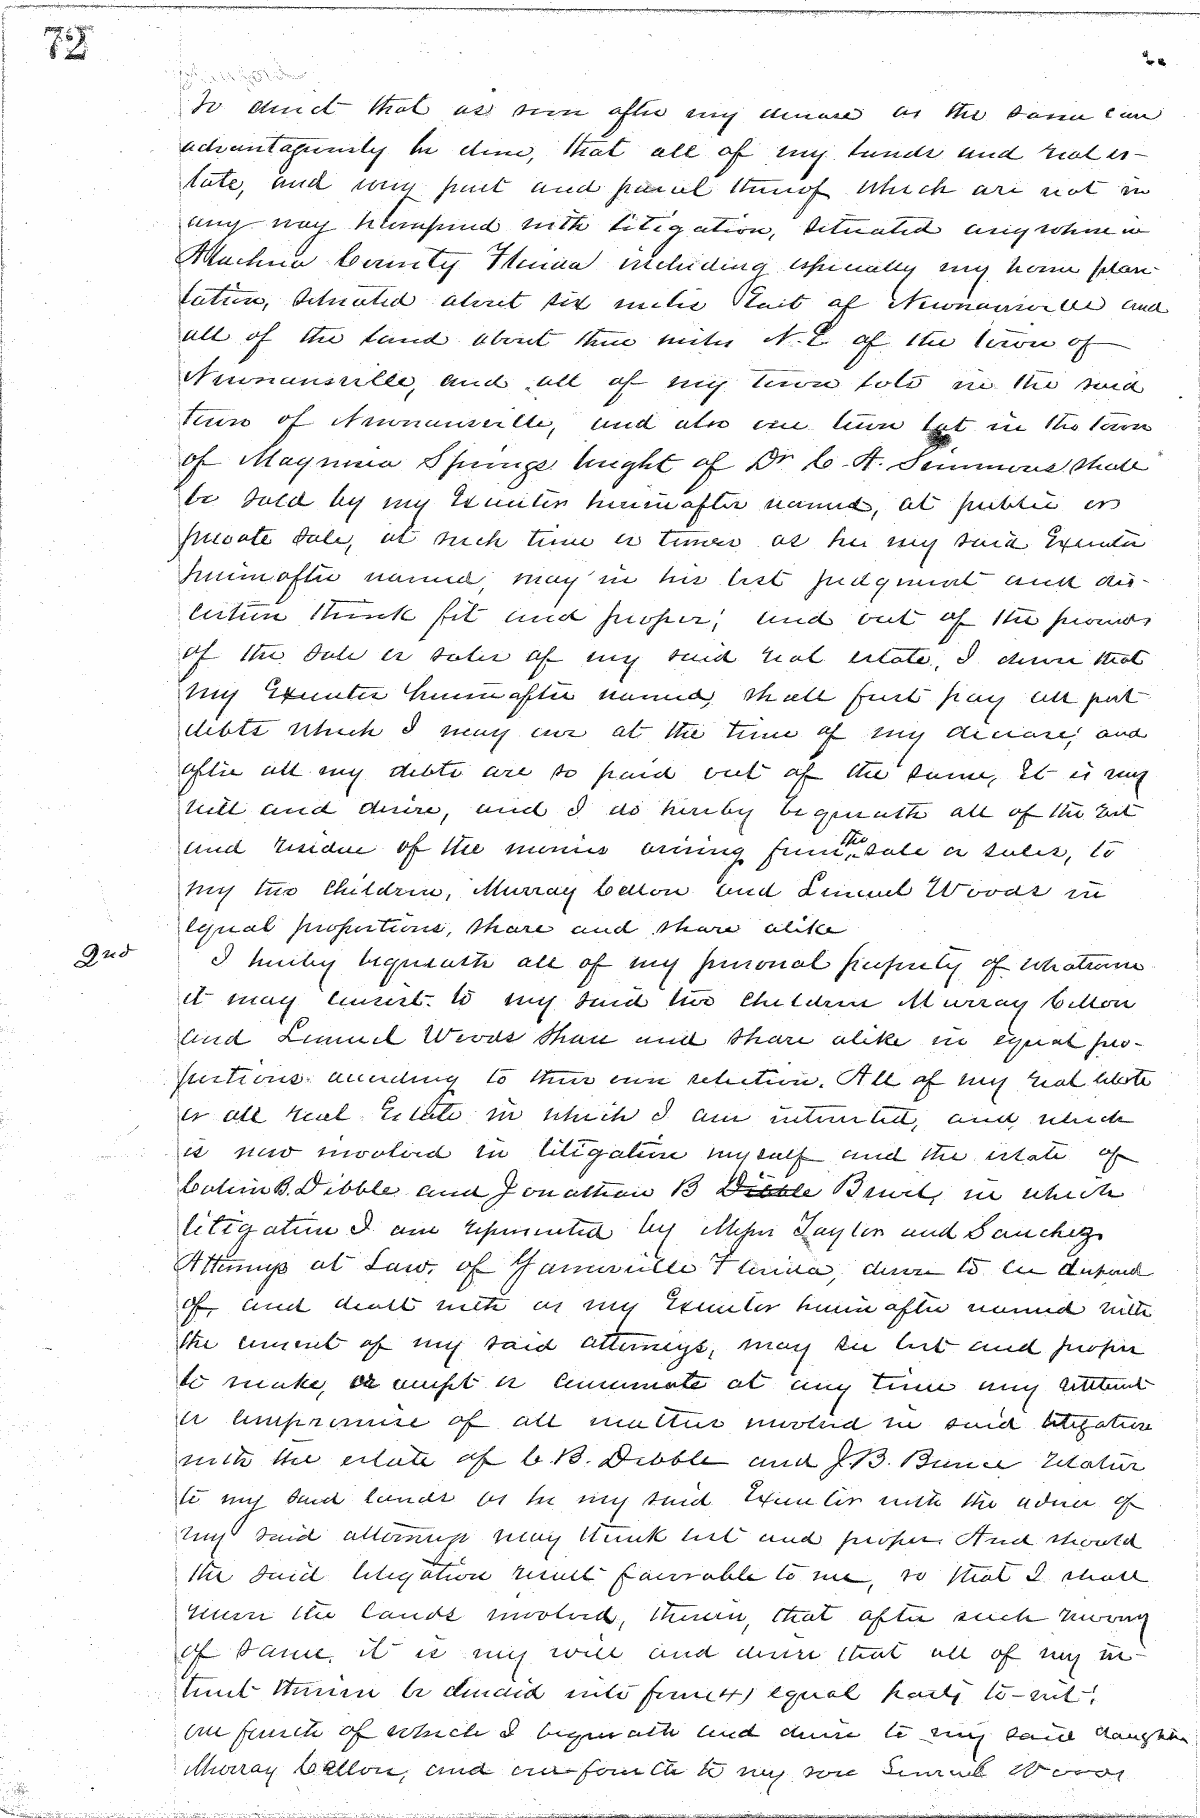 72
to direct that as soon after my decease as the same can
advantageously be done, that all of my lands and real es-
tate, and every part and parcel thereof which are not in
any way hampered with litigation, situated anywhere in
Alachua County Florida including especially my home plan-
tation, situated about six miles East of Newnansville and
all of the land about three miles N. E. of the town of
Newnansville, and all of my town lots in the said
town of Newnansville, and also one town lot in the town
of Magnesia Springs bought of Dr. C. A. Simmons shall
be sold by my Executor hereinafter named, at public or
private sale, at such time or times as he my said Executor
hereinafter named, may in his best judgment and dis-
cretion think fit and proper; and out of the proceeds
of the sale or sales of my said real estate, I desire that
my Executor hereinafter named, shall first pay all just
debts which I may owe at the time of my decease; and
after all my debts are so paid out of the same, It is my
will and desire, and I do hereby bequeath all of the rest
and residue of the monies arising from the sale or sales, to
my two children, Murray Cellon and Lemuel Woods in
equal proportions, share and share alike
2nd I hereby bequeath all of my personal property of whatsoever
it may consist to my said two children Murray Cellon
and Lemuel Woods share and share alike in equal pro-
portions according to their own selection. All of my real estate
or all real Estate in which I am interested, and which
is now involved in litigation myself and the estate of
Calvin B. Dibble and Jonathan B Dibble in which
litigation I am represented by Messrs Taylor and Sanchez
Attorneys at Law, of Gainesville Florida, desire to be disposed
of, and dealt with as my Executor hereinafter named with
the consent of my said attorneys, may see best and proper
to make, or accept or consummate at any time any settlement
or compromise of all matters involved in said litigation
with the estate of C. B. Dibble and J. B. Bunce relative
to my said lands as he my said Executor with the advice of
my said attorneys may think best and proper. And should
the said litigation result favorable to me, so that I shall
recover the lands involved, therein, that after such recovery
of same, it is my will and desire that all of my in-
terest therein be divided into four (4) equal parts to-wit:
one fourth of which I bequeath and desire to my said daughter
Murray Cellon, and one fourth to my son Lemuel Woods